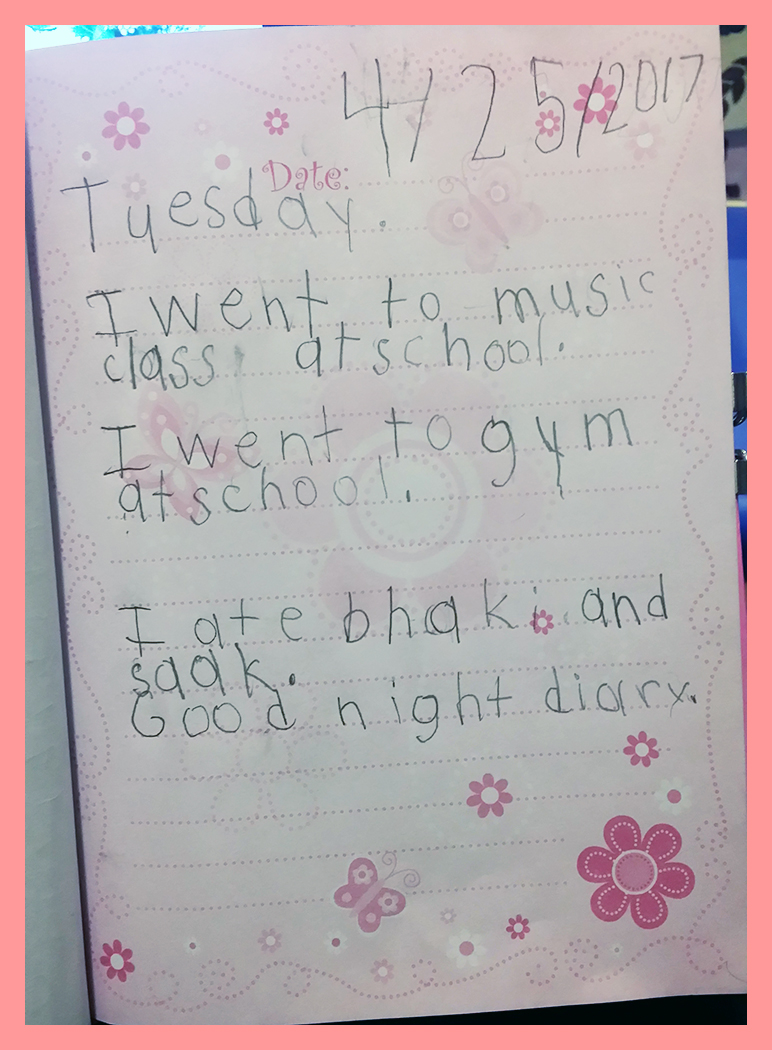 4/25/2017
Date:
Tuesday.
I went to music
class at school.
I went to gym
at school.
I ate bhaki and
saak.
Good night diary.